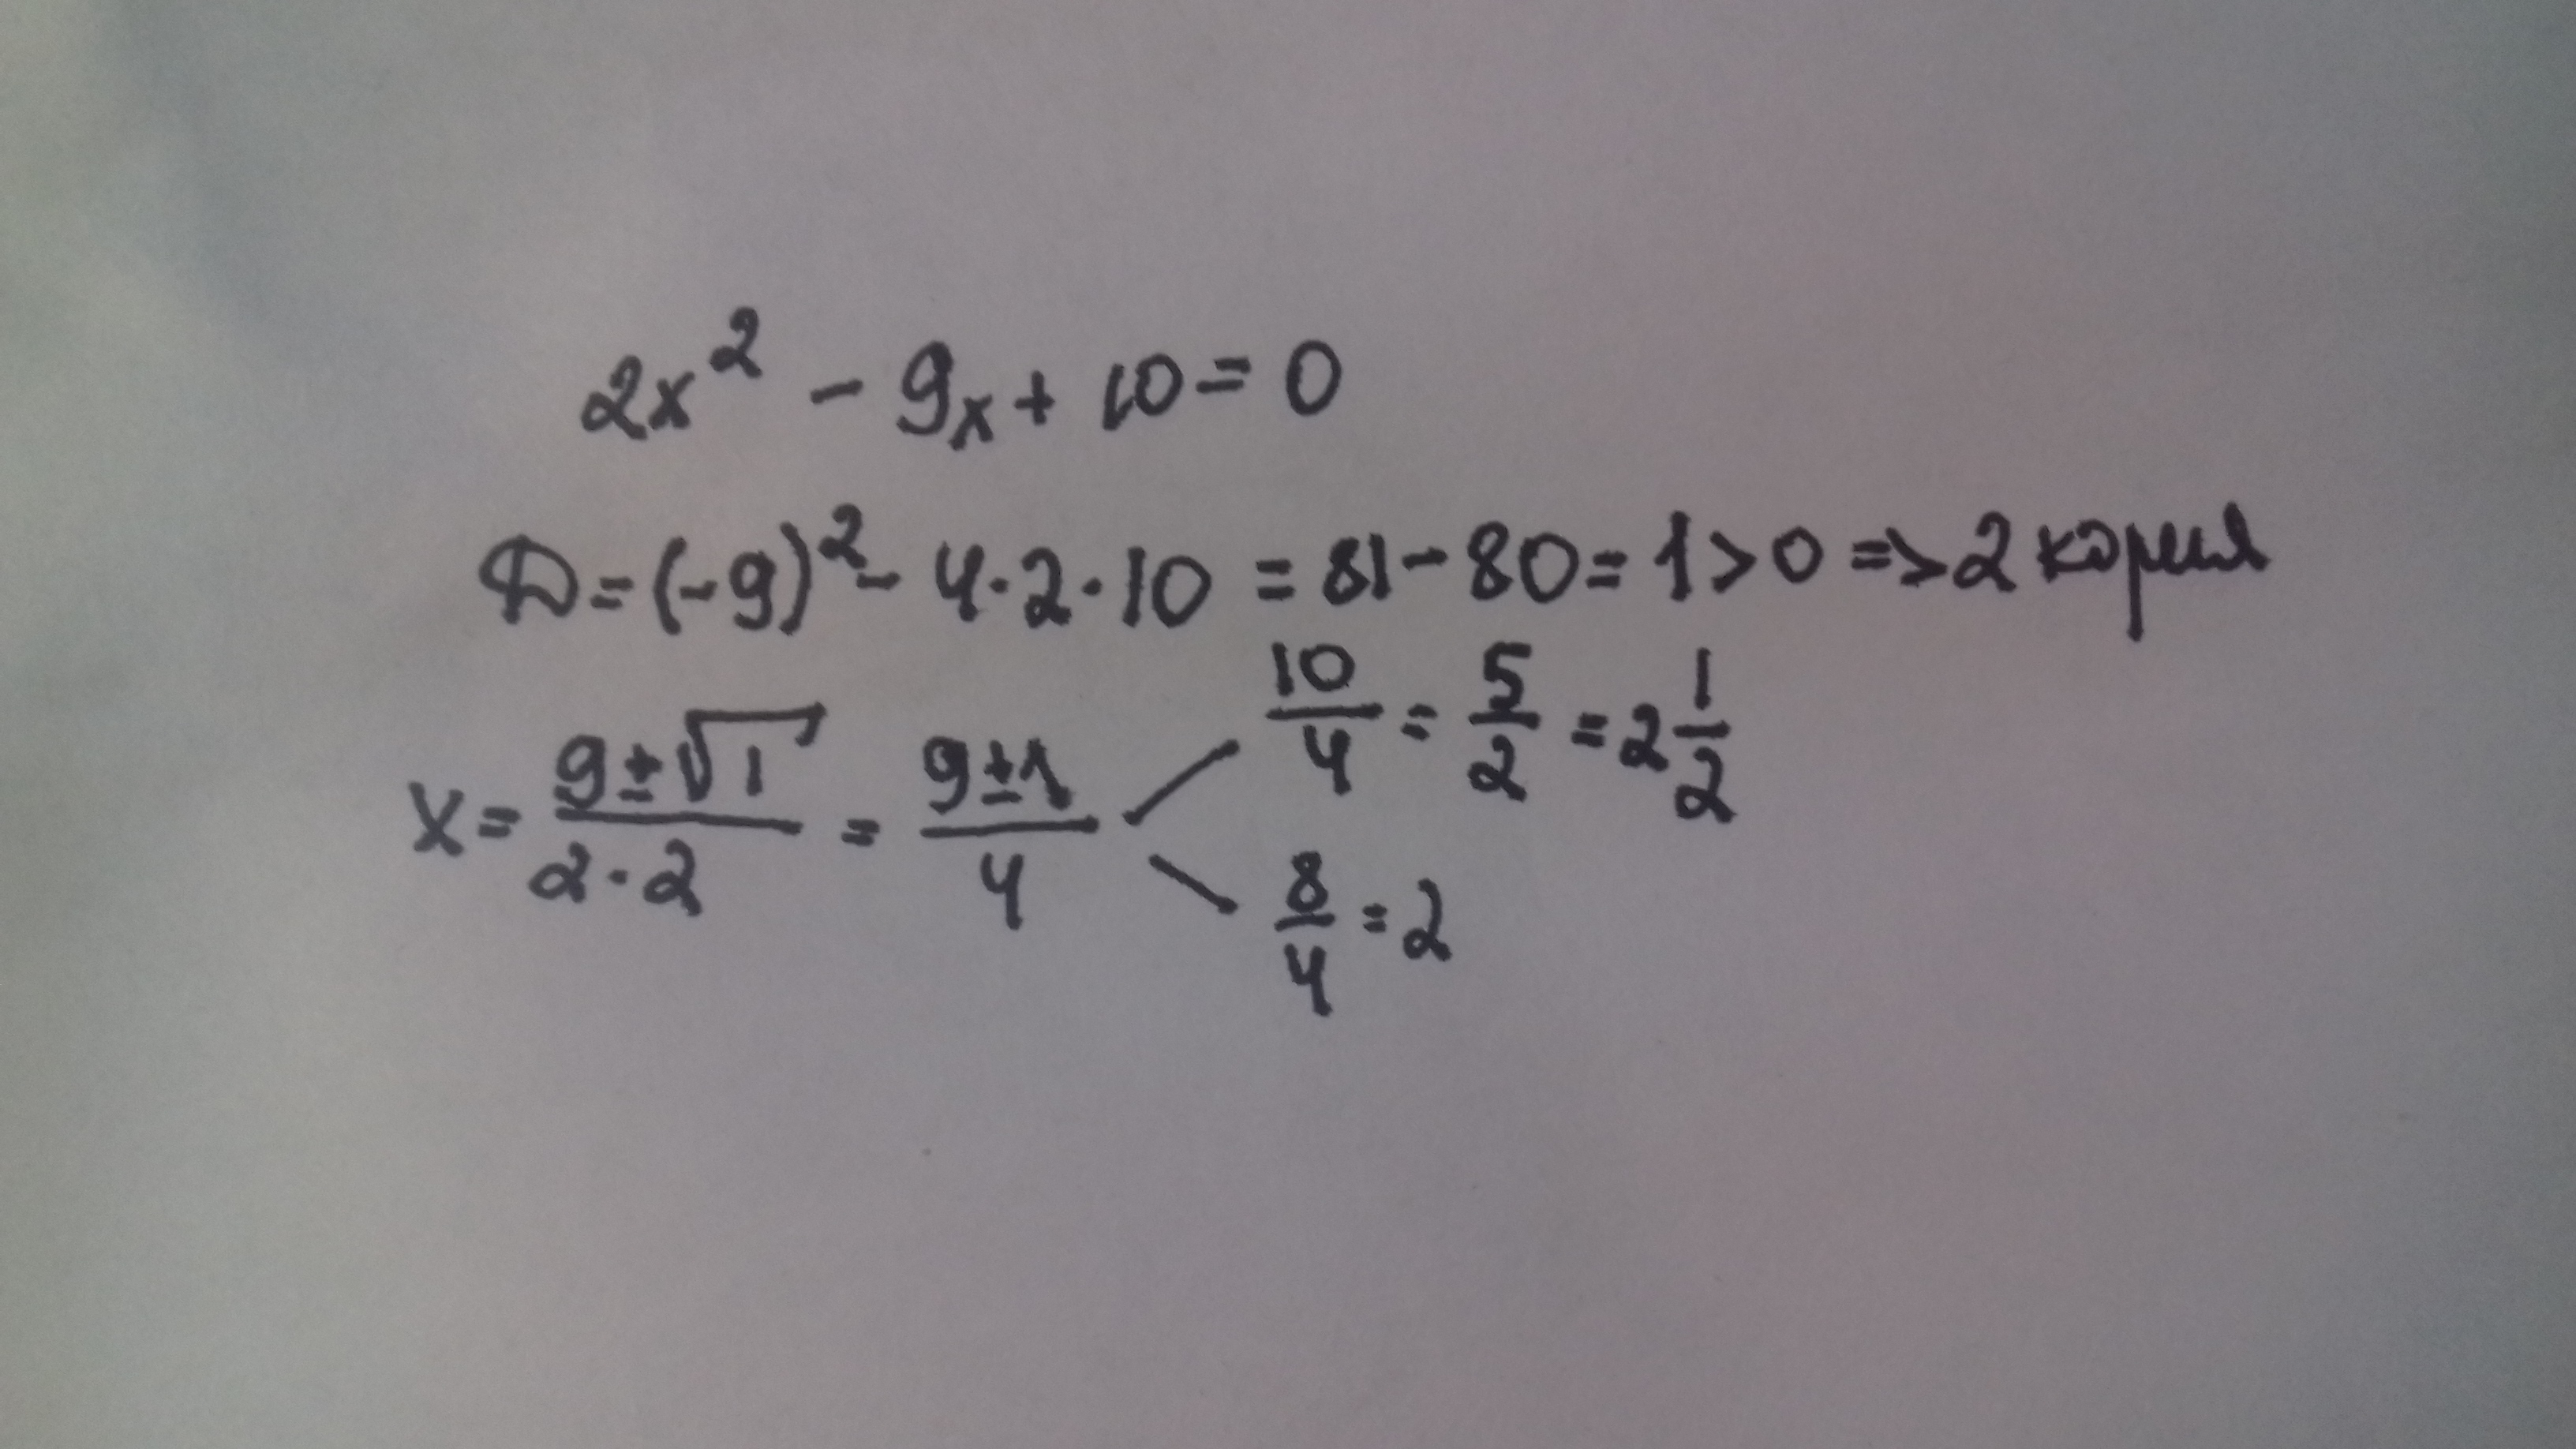 2x² - 9x + 10 = 0
D = (-9)² - 4·2·10 = 81 - 80 = 1 > 0 => 2 корня
x = (9 ± √1)/(2·2) = (9 ± 1)/4
10/4 = 5/2 = 2 1/2
8/4 = 2